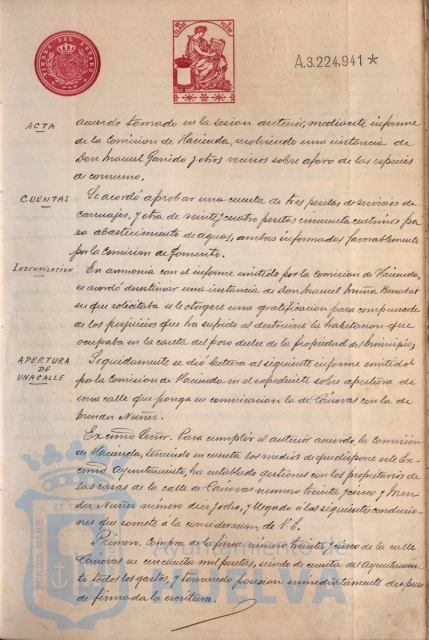 TIMBRE DEL ESTADO
A.3.224,941 *
ACTA
acuerdo tomado en la sesion anterior, mediante informe
de la Comision de Hacienda, resolviendo una instancia de
Don Manuel Garrido y otros vecinos sobre aforo de las especies
de consumo.
CUENTAS
Se acordó aprobar una cuenta de tres pesetas, de servicios de
carruajes, y otra de veinte y cuatro pesetas cincuenta centimos pa-
ra abastecimiento de aguas, ambas informadas favorablemente
por la Comision de Fomento.
INDEMNIZACION
En armonia con el informe emitido por la Comision de Hacienda,
se acordó desestimar una instancia de Don Manuel
en que solicitaba se le otorgase una gratificacion para compensarle
de los perjuicios que ha sufrido al destruirse la habitacion que
ocupaba en la caseta del pozo dulce de la propiedad del municipio.
APERTURA
DE
UNA CALLE
Seguidamente se dió lectura al siguiente informe emitido
por la Comision de Hacienda en el expediente sobre apertura de
una calle que ponga en comunicacion la de Cánovas con la de
Mendez Nuñez.
Excmo Señor. Para cumplir el anterior acuerdo, la Comision
de Hacienda, teniendo en cuenta los medios de que dispone este Ex-
cmo Ayuntamiento, ha entablado gestiones con los propietarios de
las casas de la calle de Cánovas numero treinta y cinco y Men-
dez Nuñez numero diez y ocho, y llegado á las siguientes conclusio-
nes que somete á la consideracion de V.E.
Primero. Compra de la finca número treinta y cinco de la calle
Cánovas en cincuenta mil pesetas, siendo de cuenta del Ayuntamien-
to todos los gastos, y tomando posesion inmediatamente despues
de firmada la escritura.
PORTUS MARIS ET
Ayuntamiento de
HUELVA